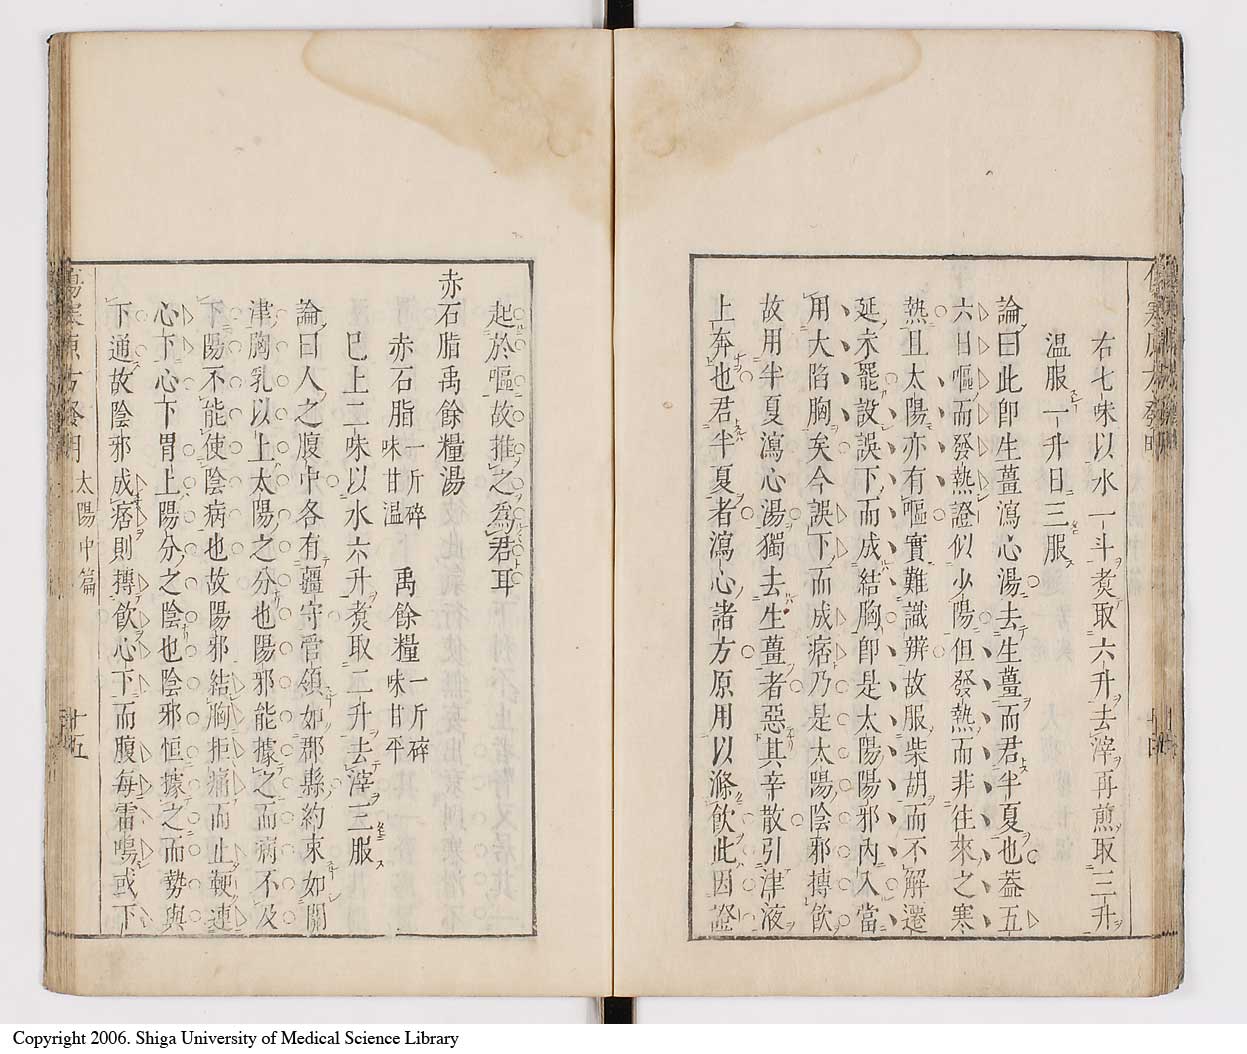 右七味以水一斗煑取六升去滓再煎取三升
温服一升日三服
論曰此卽生薑瀉心湯去生薑而君半夏也葢五
六日嘔而發熱證似少陽但發熱而非往來之寒
熱且太陽亦有嘔實難識辨故服柴胡而不解遷
延未罷設誤下而成結胸卽是太陽陽邪內入當
用大陷胸矣今誤下而成痞乃是太陽陰邪摶飮
故用半夏瀉心湯獨去生薑者惡其辛散引津液
上奔也君半夏者瀉心諸方原用以滌飮此因證
起於嘔故推之爲君耳
赤石脂禹餘糧湯
赤石脂 一斤碎 味甘温 禹餘糧 一斤碎 味甘平
巳上二味以水六升煑取二升去滓三服
論曰人之腹中各有疆守管領如郡縣約束如關
津胸乳以上太陽之分也陽邪能據之而病不及
下陽不能使陰病也故陽邪結胸拒痛而止鞕連
心下心下胃上陽分之陰也陰邪恒據之而勢與
下通故陰邪成痞則摶飮心下而腹每雷鳴或下
傷寒原方發明 太陽中篇 廿五
Copyright 2006. Shiga University of Medical Science Library